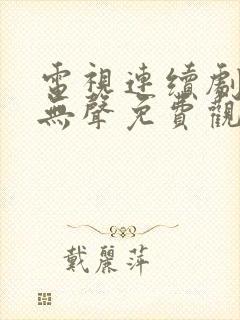 電視連續劇
無聲免費觀
戴麗萍